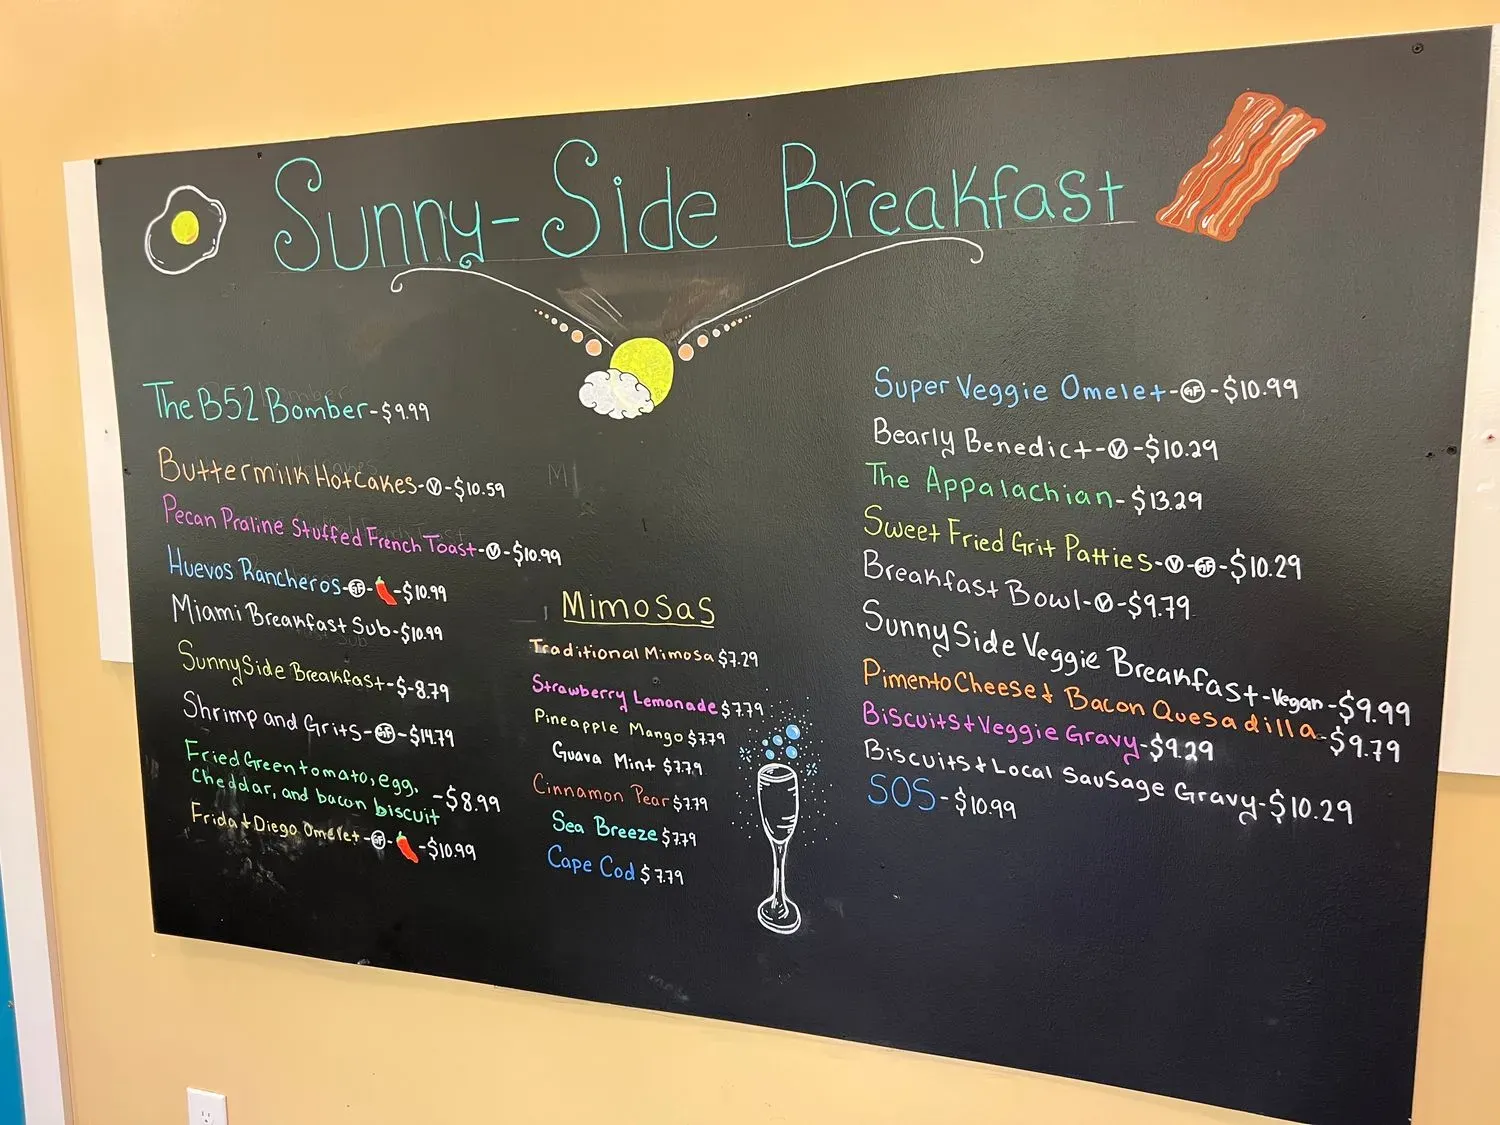 Sunny-Side Breakfast
The B52 Bomber-$9.99
Buttermilk Hotcakes-V-$10.59
Pecan Praline Stuffed French Toast-V-$10.99
Huevos Rancheros-GF-🌶-$10.99
Miami Breakfast Sub-$10.99
SunnySide Breakfast-$-8.79
Shrimp and Grits-GF-$14.79
Fried Green tomato, egg,
cheddar, and bacon biscuit -$8.99
Frida & Diego Omelet-GF-🌶-$10.99
Mimosas
Traditional Mimosa $7.29
Strawberry Lemonade $7.79
Pineapple Mango $7.79
Guava Mint $7.79
Cinnamon Pear $7.79
Sea Breeze $7.79
Cape Cod $7.79
Super Veggie Omelet-GF-$10.99
Bearly Benedict-V-$10.29
The Appalachian-$13.29
Sweet Fried Grit Patties-V-GF-$10.29
Breakfast Bowl-V-$9.79
SunnySide Veggie Breakfast-Vegan-$9.99
Pimento Cheese & Bacon Quesadilla-$9.79
Biscuits & Veggie Gravy-$9.29
Biscuits & Local Sausage Gravy-$10.29
SOS-$10.99